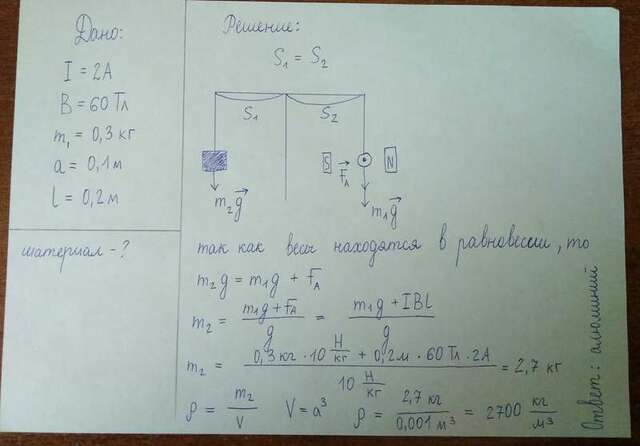 Дано:
I = 2А
B = 60 Тл
m₁ = 0,3 кг
a = 0,1 м
l = 0,2 м
материал - ?
Решение:
S₁ = S₂
S₁ S₂
S F⃗A N
m₂g⃗
m₁g⃗
так как весы находятся в равновесии, то
m₂g = m₁g + FA
m₂ = (m₁g + FA)/g = (m₁g + IBl)/g
m₂ = (0,3 кг · 10 Н/кг + 0,2 м · 60 Тл · 2А)/(10 Н/кг) = 2,7 кг
ρ = m₂/V V = a³ ρ = 2,7 кг/0,001 м³ = 2700 кг/м³
Ответ: алюминий